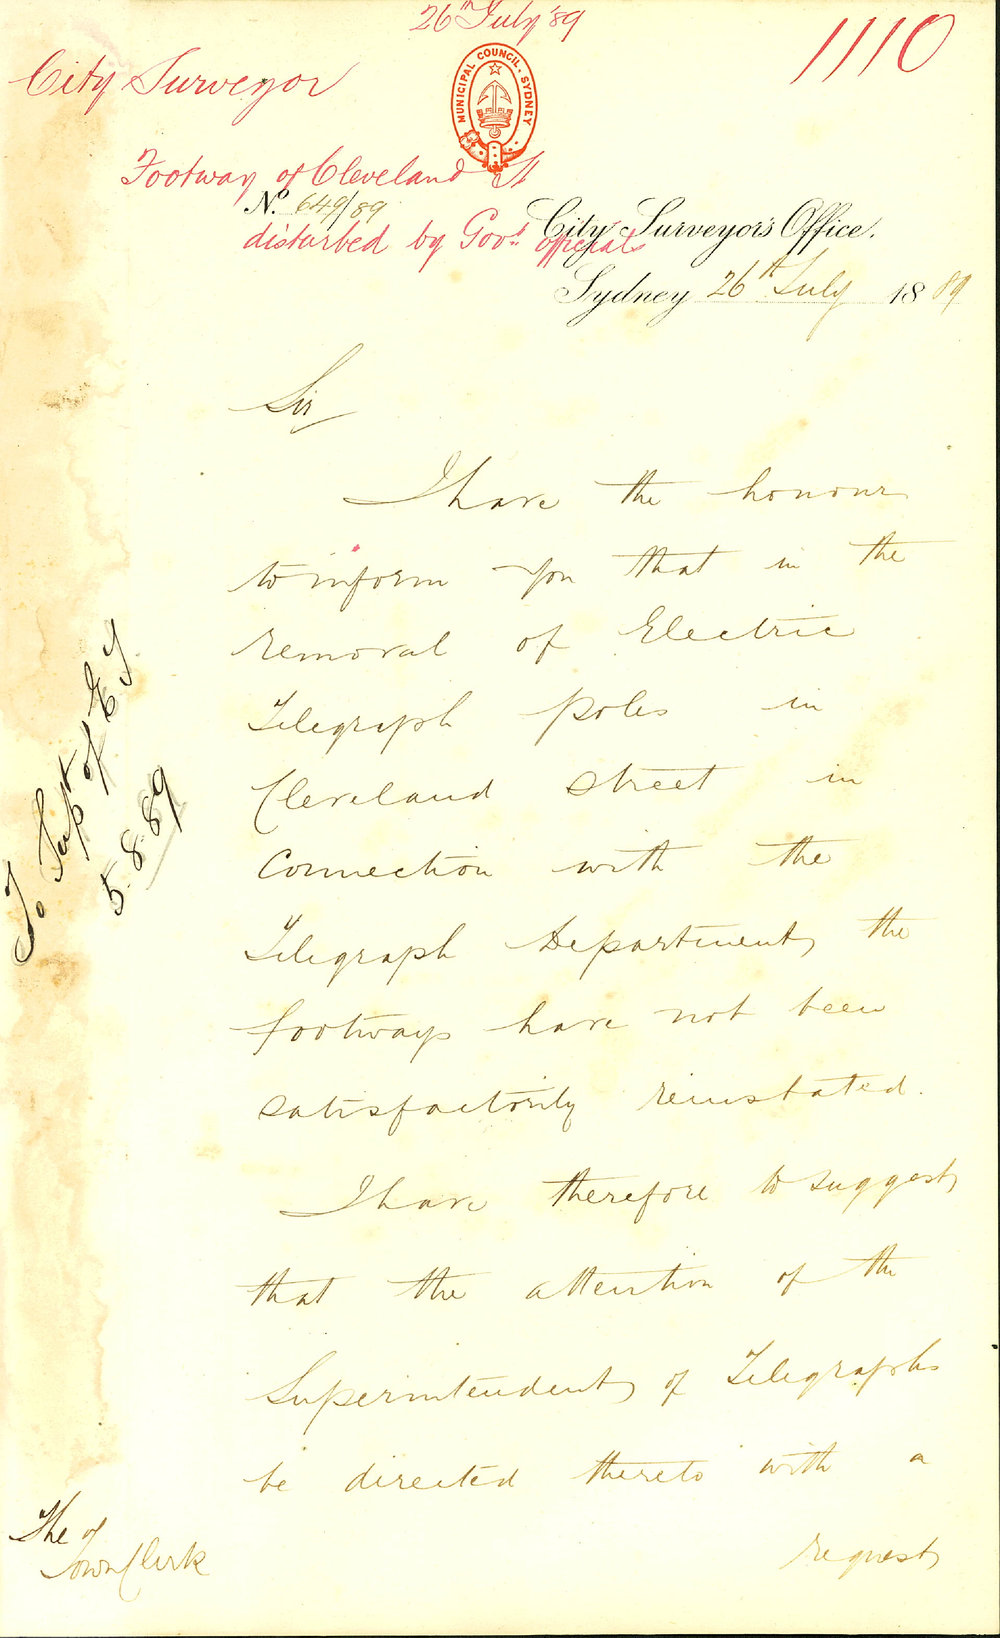 26th July '89
1110
City Surveyor
MUNICIPAL COUNCIL. SYDNEY
Footway of Cleveland St
No. 649/89
disturbed by Govt. official
City Surveyor's Office.
Sydney 26th July 1889
Sir
I have the honour
to inform you that in the
removal of Electric
Telegraph poles in
Cleveland Street in
Connection with the
Telegraph Department, the
footways have not been
satisfactorily reinstated.
I have therefore to suggest
that the attention of the
Superintendent of Telegraphs
be directed thereto with a
request
The
Town Clerk
To Supt of
5.8.89